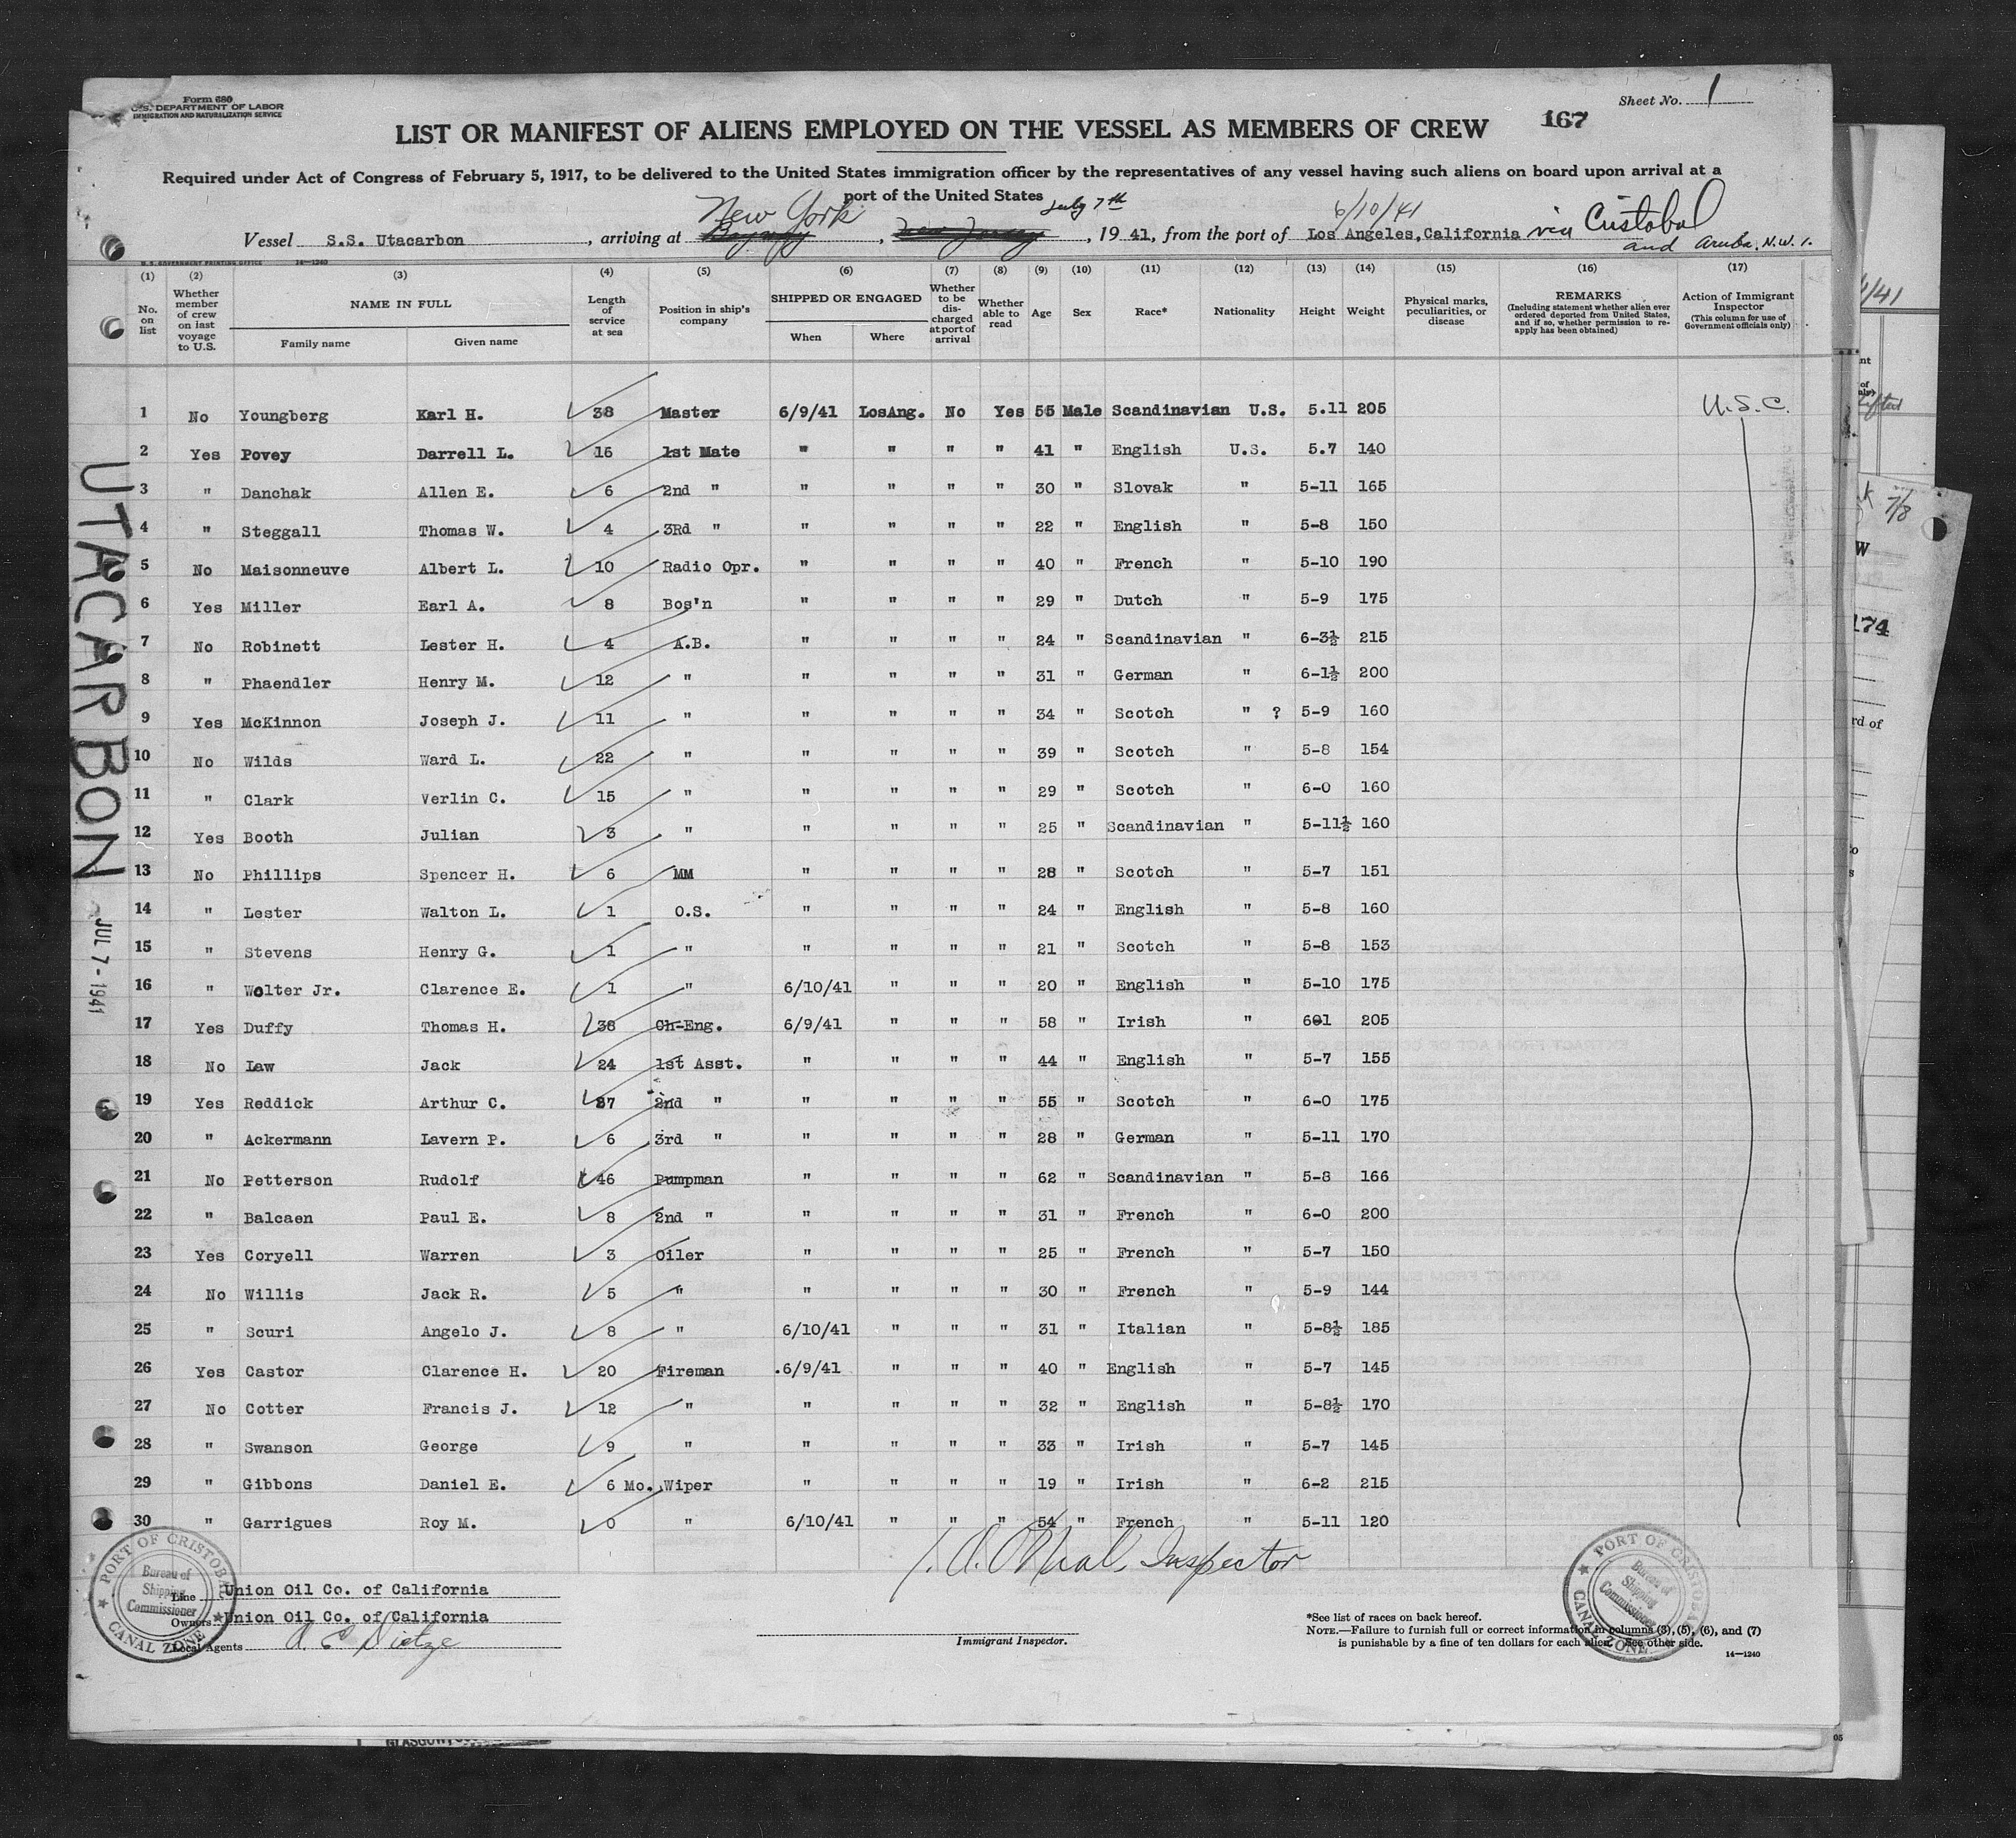 Form 680
U.S. DEPARTMENT OF LABOR
IMMIGRATION AND NATURALIZATION SERVICE
Sheet No. 1
LIST OR MANIFEST OF ALIENS EMPLOYED ON THE VESSEL AS MEMBERS OF CREW 167
Required under Act of Congress of February 5, 1917, to be delivered to the United States immigration officer by the representatives of any vessel having such aliens on board upon arrival at a
port of the United States
New York July 7th 6/10/41
Vessel S.S. Utacarbon, arriving at Bayway, New Jersey, 1941, from the port of Los Angeles,California via Cristobal
and Aruba, N.W.I.
U. S. GOVERNMENT PRINTING OFFICE 14—1240
(1) (2) (3) (4) (5) (6) (7) (8) (9) (10) (11) (12) (13) (14) (15) (16) (17)
No. on list
Whether member of crew on last voyage to U.S.
NAME IN FULL
Family name Given name
Length of service at sea
Position in ship's company
SHIPPED OR ENGAGED
When Where
Whether to be discharged at port of arrival
Whether able to read
Age Sex Race* Nationality Height Weight
Physical marks, peculiarities, or disease
REMARKS
(Including statement whether alien ever ordered deported from United States, and if so, whether permission to reapply has been obtained)
Action of Immigrant Inspector
(This column for use of Government officials only)
1 No Youngberg Karl H. 38 Master 6/9/41 LosAng. No Yes 55 Male Scandinavian U.S. 5.11 205 U.S.C.
2 Yes Povey Darrell L. 16 1st Mate " " " " 41 " English U.S. 5.7 140
3 " Danchak Allen E. 6 2nd " " " " " 30 " Slovak " 5-11 165
4 " Steggall Thomas W. 4 3Rd " " " " " 22 " English " 5-8 150
5 No Maisonneuve Albert L. 10 Radio Opr. " " " " 40 " French " 5-10 190
6 Yes Miller Earl A. 8 Bos'n " " " " 29 " Dutch " 5-9 175
7 No Robinett Lester H. 4 A.B. " " " " 24 " Scandinavian " 6-3½ 215
8 " Phaendler Henry M. 12 " " " " " 31 " German " 6-1½ 200
9 Yes McKinnon Joseph J. 11 " " " " " 34 " Scotch " ? 5-9 160
10 No Wilds Ward L. 22 " " " " " 39 " Scotch " 5-8 154
11 " Clark Verlin C. 15 " " " " " 29 " Scotch " 6-0 160
12 Yes Booth Julian 3 " " " " " 25 " Scandinavian " 5-11½ 160
13 No Phillips Spencer H. 6 MM " " " " 28 " Scotch " 5-7 151
14 " Lester Walton L. 1 O.S. " " " " 24 " English " 5-8 160
15 " Stevens Henry G. 1 " " " " " 21 " Scotch " 5-8 153
16 " Wolter Jr. Clarence E. 1 " 6/10/41 " " " 20 " English " 5-10 175
17 Yes Duffy Thomas H. 38 Ch-Eng. 6/9/41 " " " 58 " Irish " 601 205
18 No Law Jack 24 1st Asst. " " " " 44 " English " 5-7 155
19 Yes Reddick Arthur C. 37 2nd " " " " " 55 " Scotch " 6-0 175
20 " Ackermann Lavern P. 6 3rd " " " " " 28 " German " 5-11 170
21 No Petterson Rudolf 46 Pumpman " " " " 62 " Scandinavian " 5-8 166
22 " Balcaen Paul E. 8 2nd " " " " " 31 " French " 6-0 200
23 Yes Coryell Warren 3 Oiler " " " " 25 " French " 5-7 150
24 No Willis Jack R. 5 " " " " " 30 " French " 5-9 144
25 " Scuri Angelo J. 8 " 6/10/41 " " " 31 " Italian " 5-8½ 185
26 Yes Castor Clarence H. 20 Fireman .6/9/41 " " " 40 " English " 5-7 145
27 No Cotter Francis J. 12 " " " " " 32 " English " 5-8½ 170
28 " Swanson George 9 " " " " " 33 " Irish " 5-7 145
29 " Gibbons Daniel E. 6 Mo. Wiper " " " " 19 " Irish " 6-2 215
30 " Garrigues Roy M. 0 " 6/10/41 " " " 54 " French " 5-11 120
UTACARBON
JUL 7 - 1941
Inspector
PORT OF CRISTOBAL
Bureau of Shipping Commissioner
CANAL ZONE
Line Union Oil Co. of California
Owners Union Oil Co. of California
Local Agents
Immigrant Inspector.
*See list of races on back hereof.
NOTE.—Failure to furnish full or correct information in columns (3), (5), (6), and (7)
is punishable by a fine of ten dollars for each alien. See other side.
14—1240
PORT OF CRISTOBAL
Bureau of Shipping Commissioner
CANAL ZONE
7/8
174